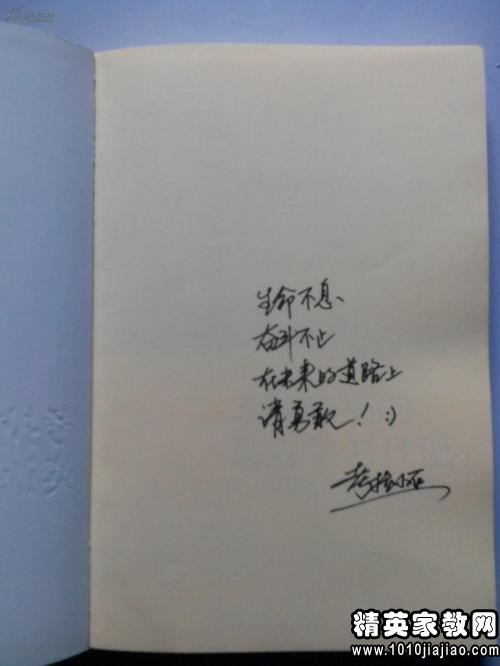 生命不息、
奋斗不止
在未来的道路上
请勇敢！:)
精英家教网
www.1010jiajiao.com